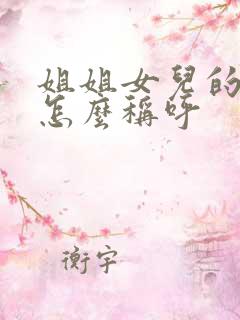 姐姐女兒的
怎麼稱呼
衡宇